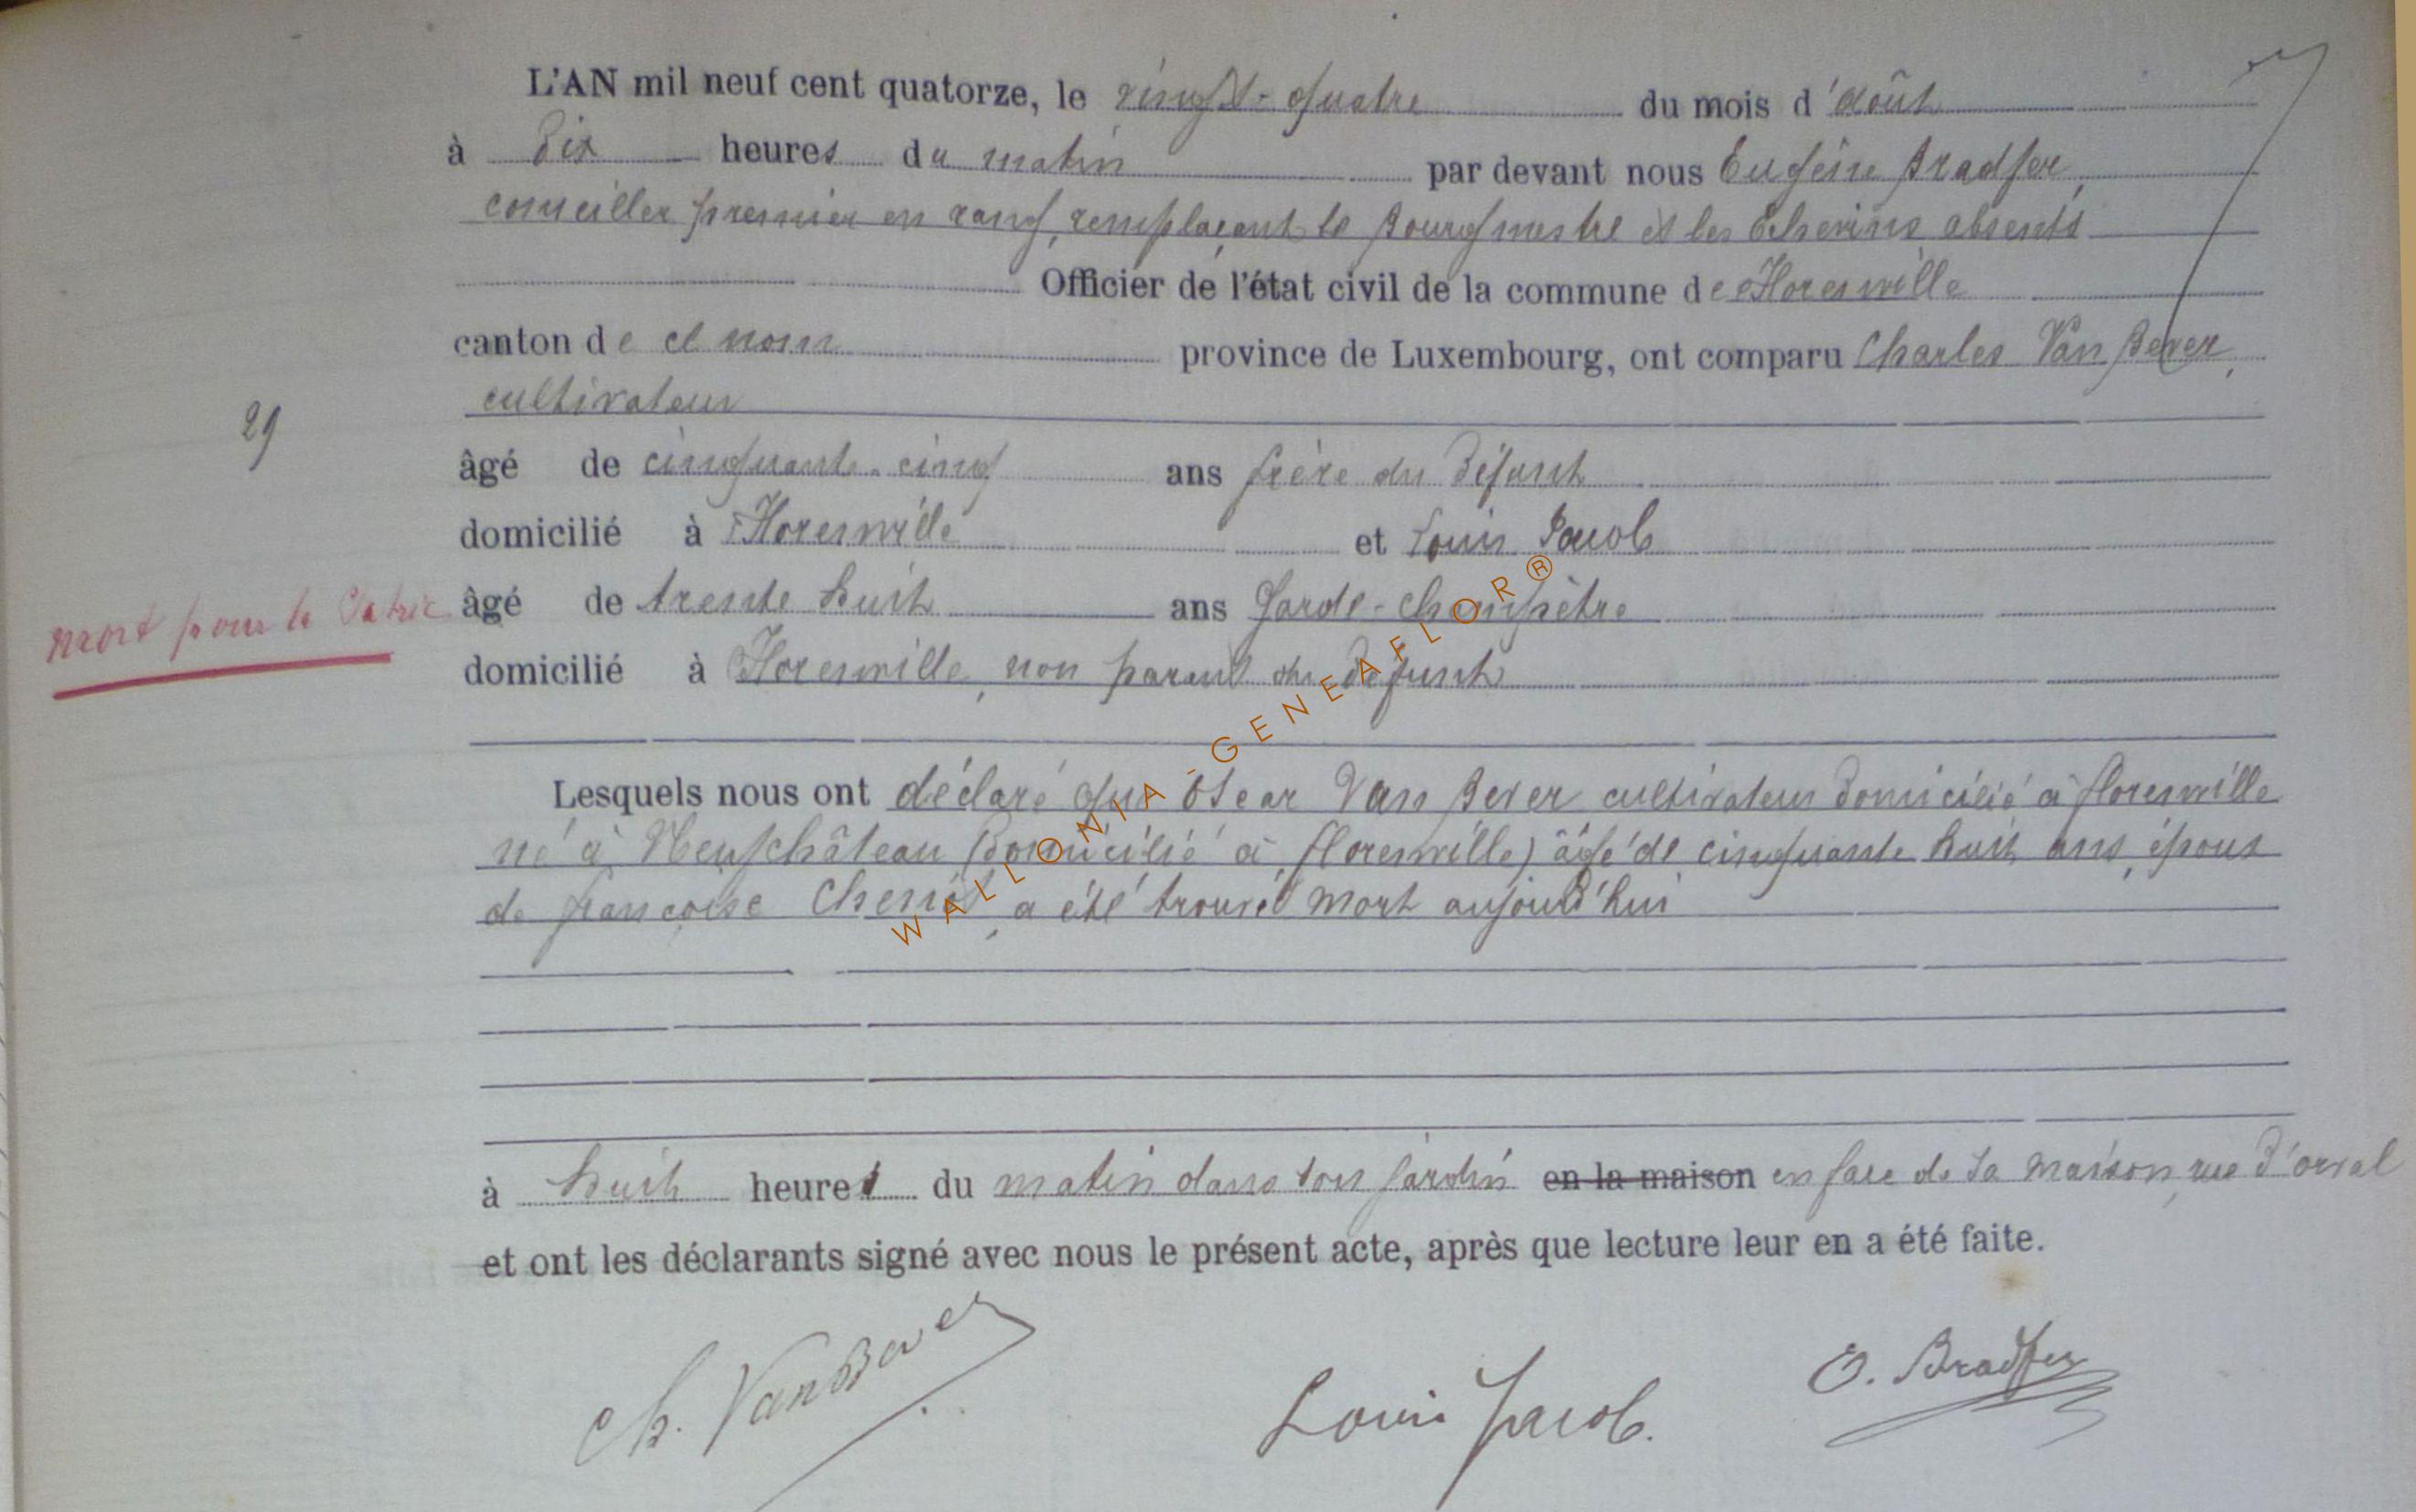 L'AN mil neuf cent quatorze, le vingt-quatre du mois d'août
à dix heures du matin par devant nous Eugène Bradfer,
conseiller premier en rang, remplaçant le Bourgmestre et les Echevins absents
Officier de l'état civil de la commune de Florenville
canton de ce nom province de Luxembourg, ont comparu Charles Van Bever,
cultivateur
29
âgé de cinquante-cinq ans frère du défunt
domicilié à Florenville et Louis Jacob
mort pour la Patrie
âgé de trente huit ans Garde-champêtre
domicilié à Florenville, non parent du défunt
Lesquels nous ont déclaré que Oscar Van Bever cultivateur domicilié à florenville
né à Neufchâteau (domicilié à florenville) âgé de cinquante huit ans, époux
de françoise Chenot, a été trouvé mort aujourd'hui
à huit heures du matin dans son jardin en la maison en face de sa maison, rue d'orval
et ont les déclarants signé avec nous le présent acte, après que lecture leur en a été faite.
Ch. VanBever
Louis Jacob.
E. Bradfer
WALLONIA-GENEAFLOR®